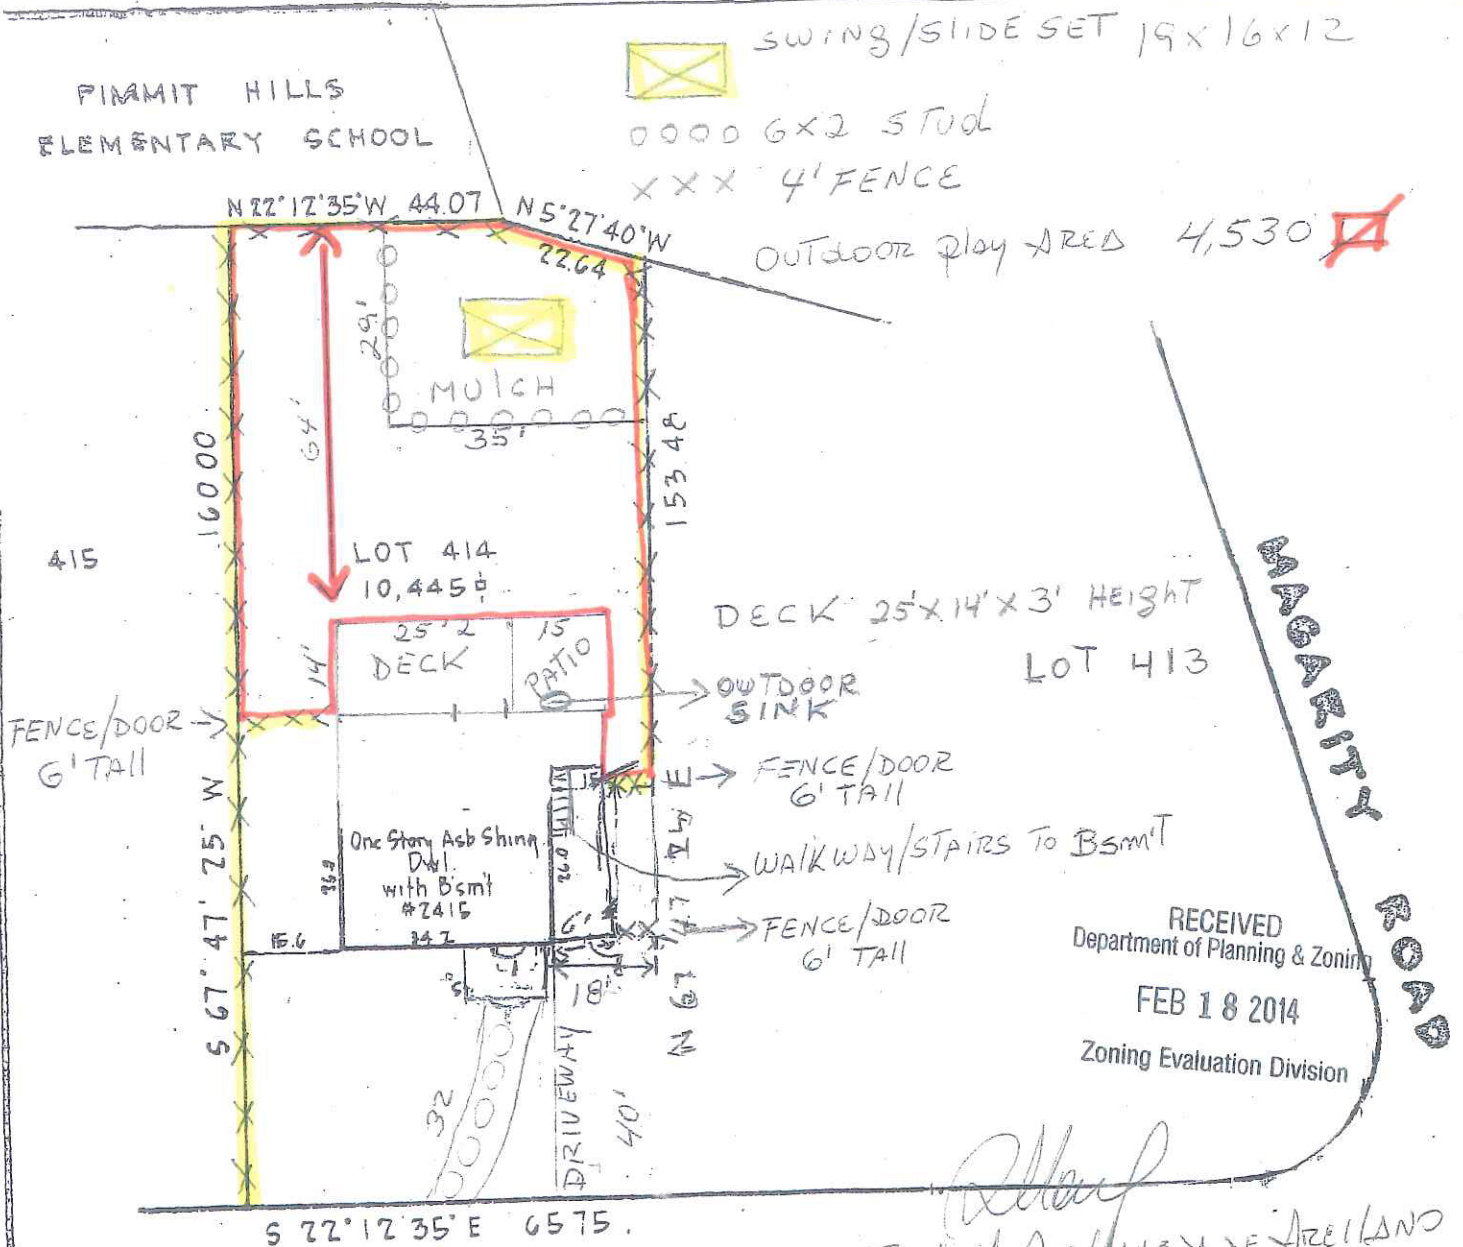 SWING/SLIDE SET 19x16x12
PIMMIT HILLS
ELEMENTARY SCHOOL
6x2 STUD
xxx 4' FENCE
N 22°12'35"W 44.07 N 5°27'40"W
22.64
OUTDOOR Play AREA 4,530
29'
MULCH
35'
64'
160 00
153.48
415
LOT 414
10,445
DECK 25'x14'x3' HEIGHT
LOT 413
25' 2 15
DECK
PATIO
14'
OUTDOOR
SINK
FENCE/DOOR
6' TAll
FENCE/DOOR
6' TAll
One Story Asb Shing
Dwl.
with Bsmt
#2415
26.0
WALKWAY/STAIRS TO Bsm'T
FENCE/DOOR
6' TAll
15.6
34.2
6'
18'
S 67° 47' 25 W
MAGARITY ROAD
RECEIVED
Department of Planning & Zoning
FEB 18 2014
Zoning Evaluation Division
32
DRIVEWAY
40'
S 22°12'35"E 65 75.
ARELLANO